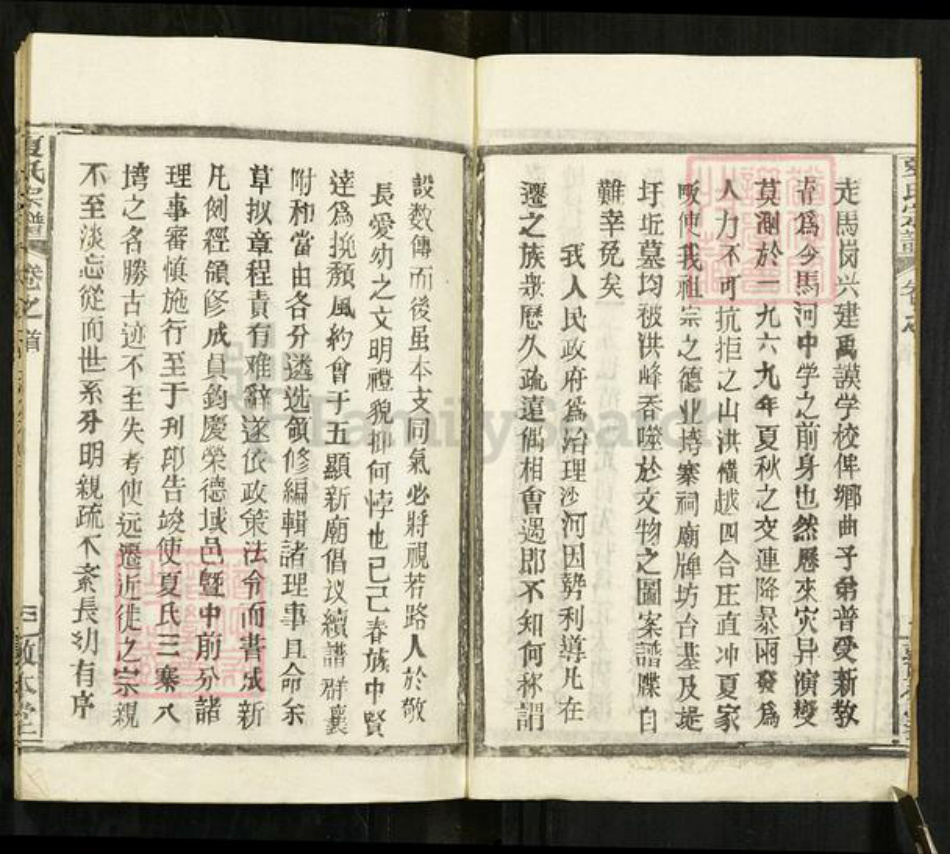 走馬岗兴建禹謨学校俾鄉曲子弟普受新教
育爲今馬河中学之前身也然歷來灾异演變
莫測於一九六九年夏秋之交連降暴雨發爲
人力不可抗拒之山洪横越四合庄直冲夏家
畈使我祖宗之德业塆寨祠廟牌坊台基及堤
圩坵墓均被洪峰吞噬於文物之圖案譜牒自
難幸免矣
我人民政府爲治理沙河因勢利導凡在
遷之族衆歷久疏遠偶相會遇即不知何称謂
設数傳而後虽本支同氣必將視若路人於敬
長愛幼之文明禮貌抑何悖也己巳春族中賢
達爲挽頹風約會于五顯新廟倡议續譜群襄
附和當由各分遴选領修編輯諸理事且命余
草拟章程責有难辭遂依政策法令而書成新
凡例經領修成員鈞慶榮德域邑暨中前分諸
理事審慎施行至于刋印告竣使夏氏三寨八
塆之名勝古迹不至失考使远遷近徙之宗親
不至淡忘從而世系分明親疏不紊長幼有序
夏氏宗譜
卷之首
三
敦本堂
FamilySearch